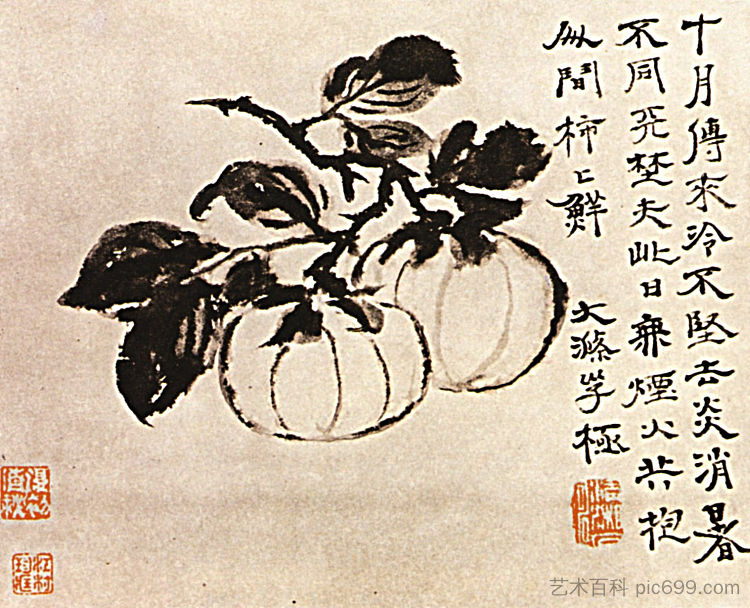 十月傳來冷不堅去炎消暑
不同埜夫此日煙火共抱
聞柿鮮
大滌子極
艺术百科 pic699.com